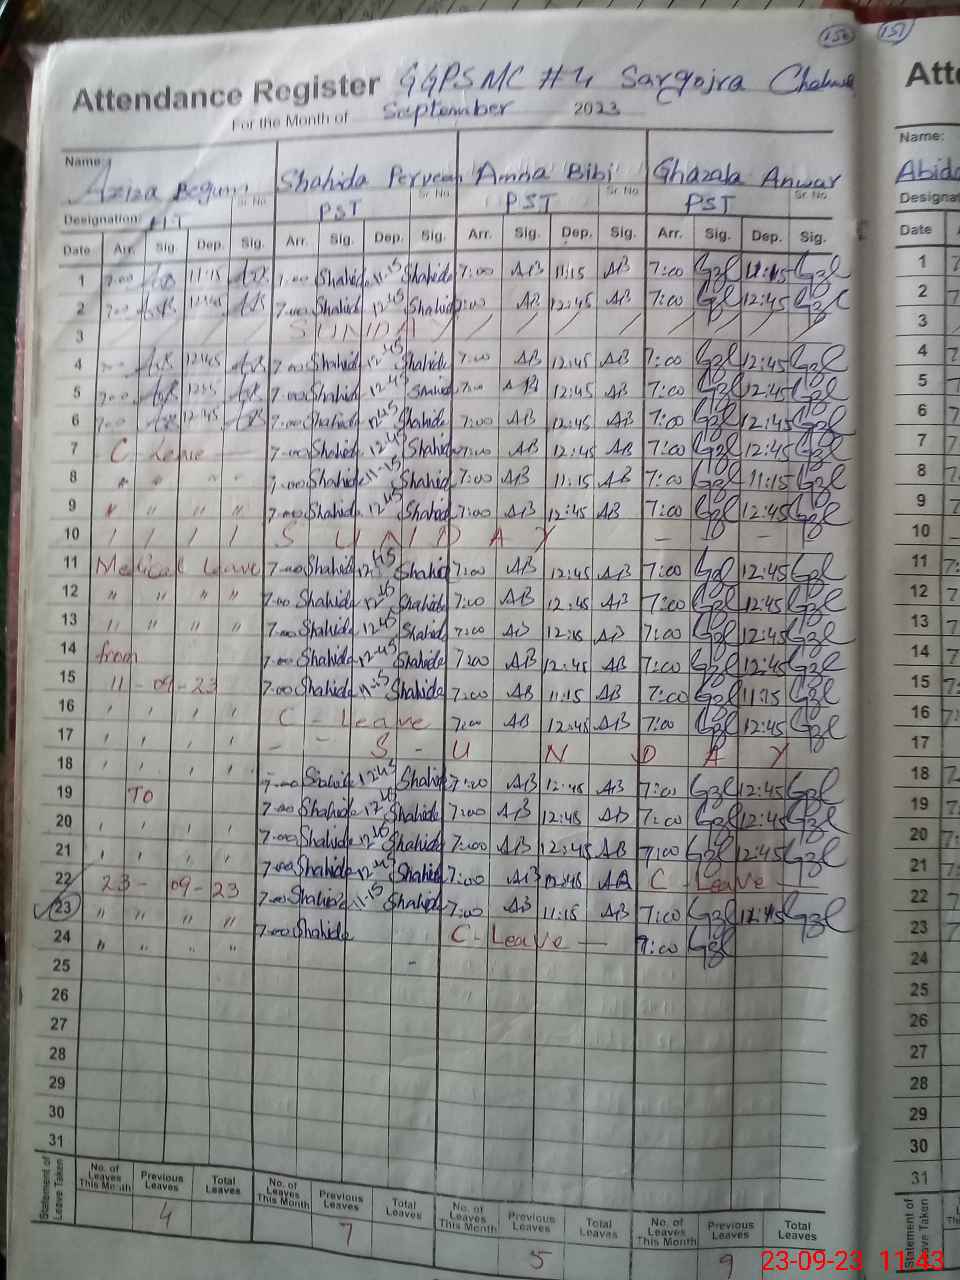 156 157
Attendance Register GGPSMC #4 Sargojra Chakwal
For the Month of September 2023
Name: Aziza Begum Shahida Perveen Amna Bibi Ghazala Anwar
Sr. No Sr. No Sr. No Sr. No
Designation: PST PST PST
Date Arr. Sig. Dep. Sig. Arr. Sig. Dep. Sig. Arr. Sig. Dep. Sig. Arr. Sig. Dep. Sig.
1 7:00 11:15 7:00 Shahida 11:15 Shahida 7:00 AB 11:15 AB 7:00 Gzl 11:15 Gzl
2 7:00 12:45 7:00 Shahida 12:45 Shahida 7:00 AB 12:45 AB 7:00 Gzl 12:45 Gzl
3 SUNDAY
4 12:45 7:00 Shahida 12:45 Shahida 7:00 AB 12:45 AB 7:00 Gzl 12:45 Gzl
5 7:00 7:00 Shahida 12:45 Shahida 7:00 AB 12:45 AB 7:00 Gzl 12:45 Gzl
6 7:00 12:45 7:00 Shahida 12:45 Shahida 7:00 AB 12:45 AB 7:00 Gzl 12:45 Gzl
7 C Leave — 7:00 Shahida 12:45 Shahida 7:00 AB 12:45 AB 7:00 Gzl 12:45 Gzl
8 " " " " 7:00 Shahida 11:15 Shahida 7:00 AB 11:15 AB 7:00 Gzl 11:15 Gzl
9 " " " " 7:00 Shahida 12:45 Shahida 7:00 AB 12:45 AB 7:00 Gzl 12:45 Gzl
10 SUNDAY
11 Medical Leave 7:00 Shahida 12:45 Shahida 7:00 AB 12:45 AB 7:00 Gzl 12:45 Gzl
12 " " " " 7:00 Shahida 12:45 Shahida 7:00 AB 12:45 AB 7:00 Gzl 12:45 Gzl
13 " " " " 7:00 Shahida 12:45 Shahida 7:00 AB 12:45 AB 7:00 Gzl 12:45 Gzl
14 from 7:00 Shahida 12:45 Shahida 7:00 AB 12:45 AB 7:00 Gzl 12:45 Gzl
15 11-09-23 7:00 Shahida 11:15 Shahida 7:00 AB 11:15 AB 7:00 Gzl 11:15 Gzl
16 C-Leave 7:00 AB 12:45 AB 7:00 Gzl 12:45 Gzl
17 SUNDAY
18 7:00 Shahida 12:45 Shahida 7:00 AB 12:45 AB 7:00 Gzl 12:45 Gzl
19 TO 7:00 Shahida 12:45 Shahida 7:00 AB 12:45 AB 7:00 Gzl 12:45 Gzl
20 7:00 Shahida 12:45 Shahida 7:00 AB 12:45 AB 7:00 Gzl 12:45 Gzl
21 7:00 Shahida 12:45 Shahida 7:00 AB 12:45 AB C-Leave —
22 23-09-23 7:00 Shahida 11:15 Shahida 7:00 AB 11:15 AB 7:00 Gzl Gzl
23 " " " " 7:00 Shahida C-Leave — 7:00 Gzl
24 " " " "
25
26
27
28
29
30
31
Statement of Leave Taken
No. of Leaves This Month Previous Leaves Total Leaves No. of Leaves This Month Previous Leaves Total Leaves No. of Leaves This Month Previous Leaves Total Leaves No. of Leaves This Month Previous Leaves Total Leaves
4 7 5 9
Name:
Abida
Date
1
2
3
4
5
6
7
8
9
10
11
12
13
14
15
16
17
18
19
20
21
22
23
24
25
26
27
28
29
30
31
Statement of Leave Taken
23-09-23 11:43